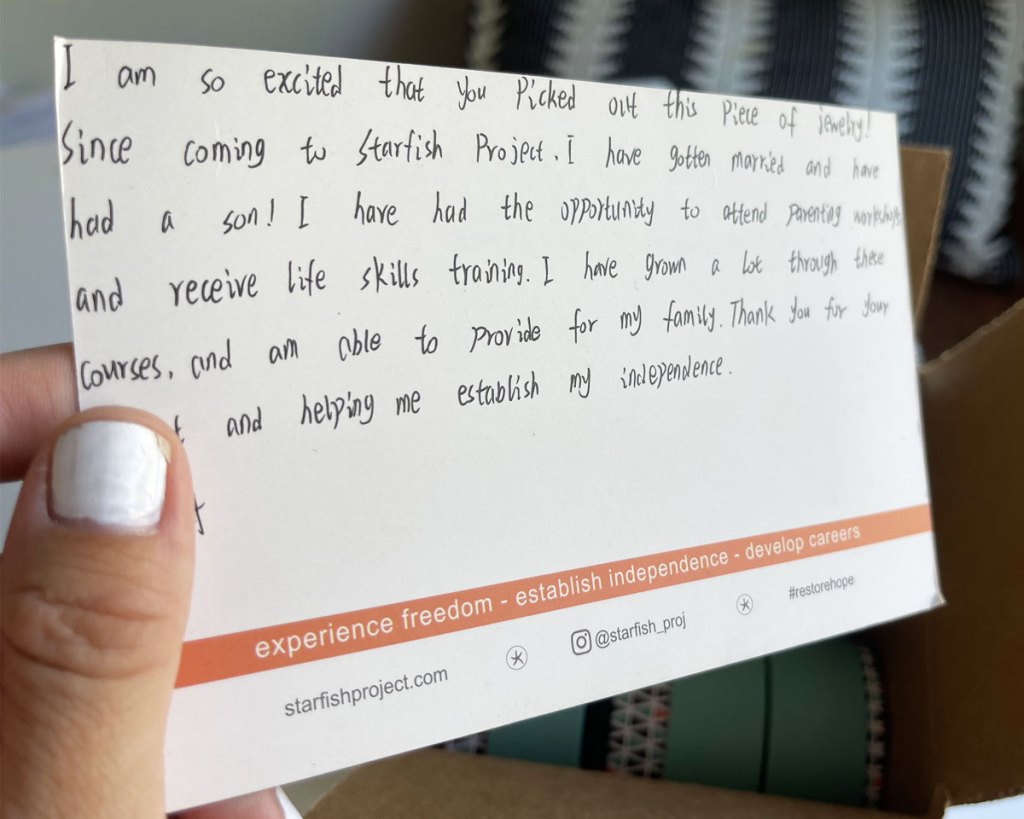 I am so excited that you Picked out this Piece of jewelry!
Since coming to Starfish Project. I have gotten married and have
had a son! I have had the opportunity to attend parenting workshops
and receive life skills training. I have grown a lot through these
courses, and am able to provide for my family. Thank you for your
and helping me establish my independence.
experience freedom - establish independence - develop careers
starfishproject.com @starfish_proj #restorehope